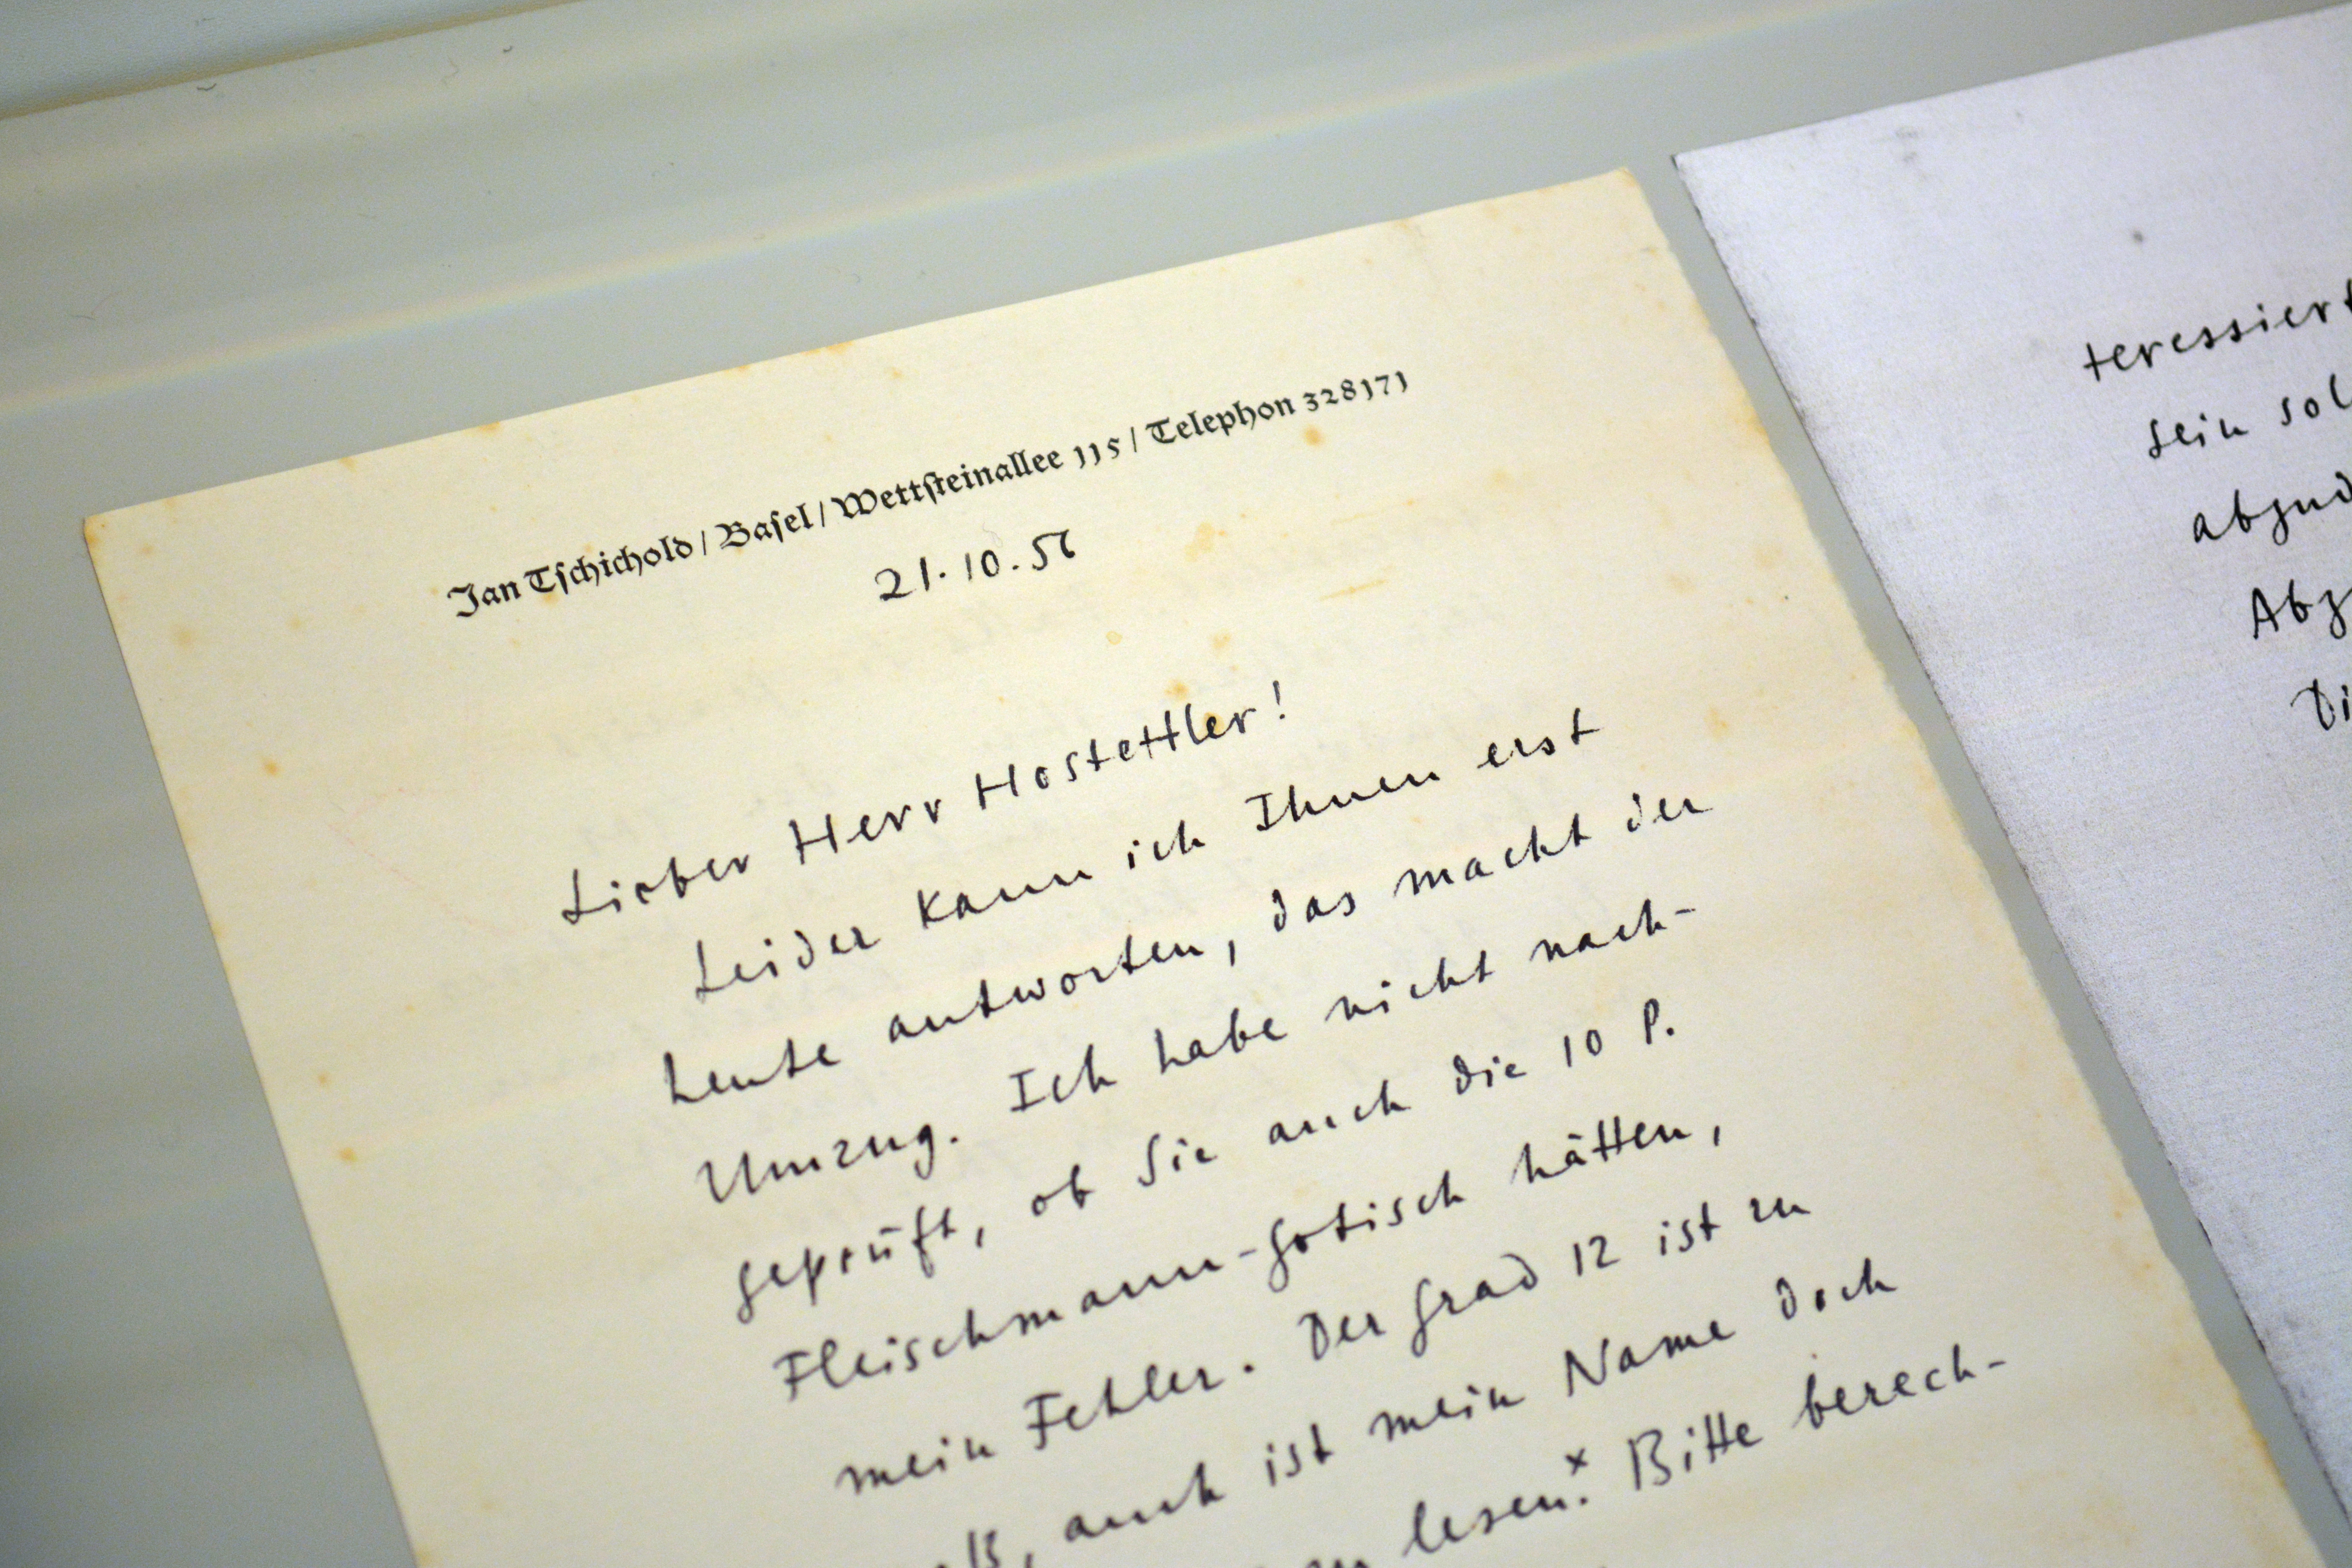 Jan Tschichold / Basel / Wettsteinallee 115 / Telephon 328171
21.10.56
Lieber Herr Hostettler!
Leider kann ich Ihnen erst
heute antworten, das macht der
Umzug. Ich habe nicht nach-
geprüft, ob Sie auch die 10 P.
Fleischmann-Gotisch hätten,
mein Fehler. Der Grad 12 ist zu
auch ist mein Name doch
lesen.x Bitte berech-
teressiert
sein sol
abzud
Abz
Di